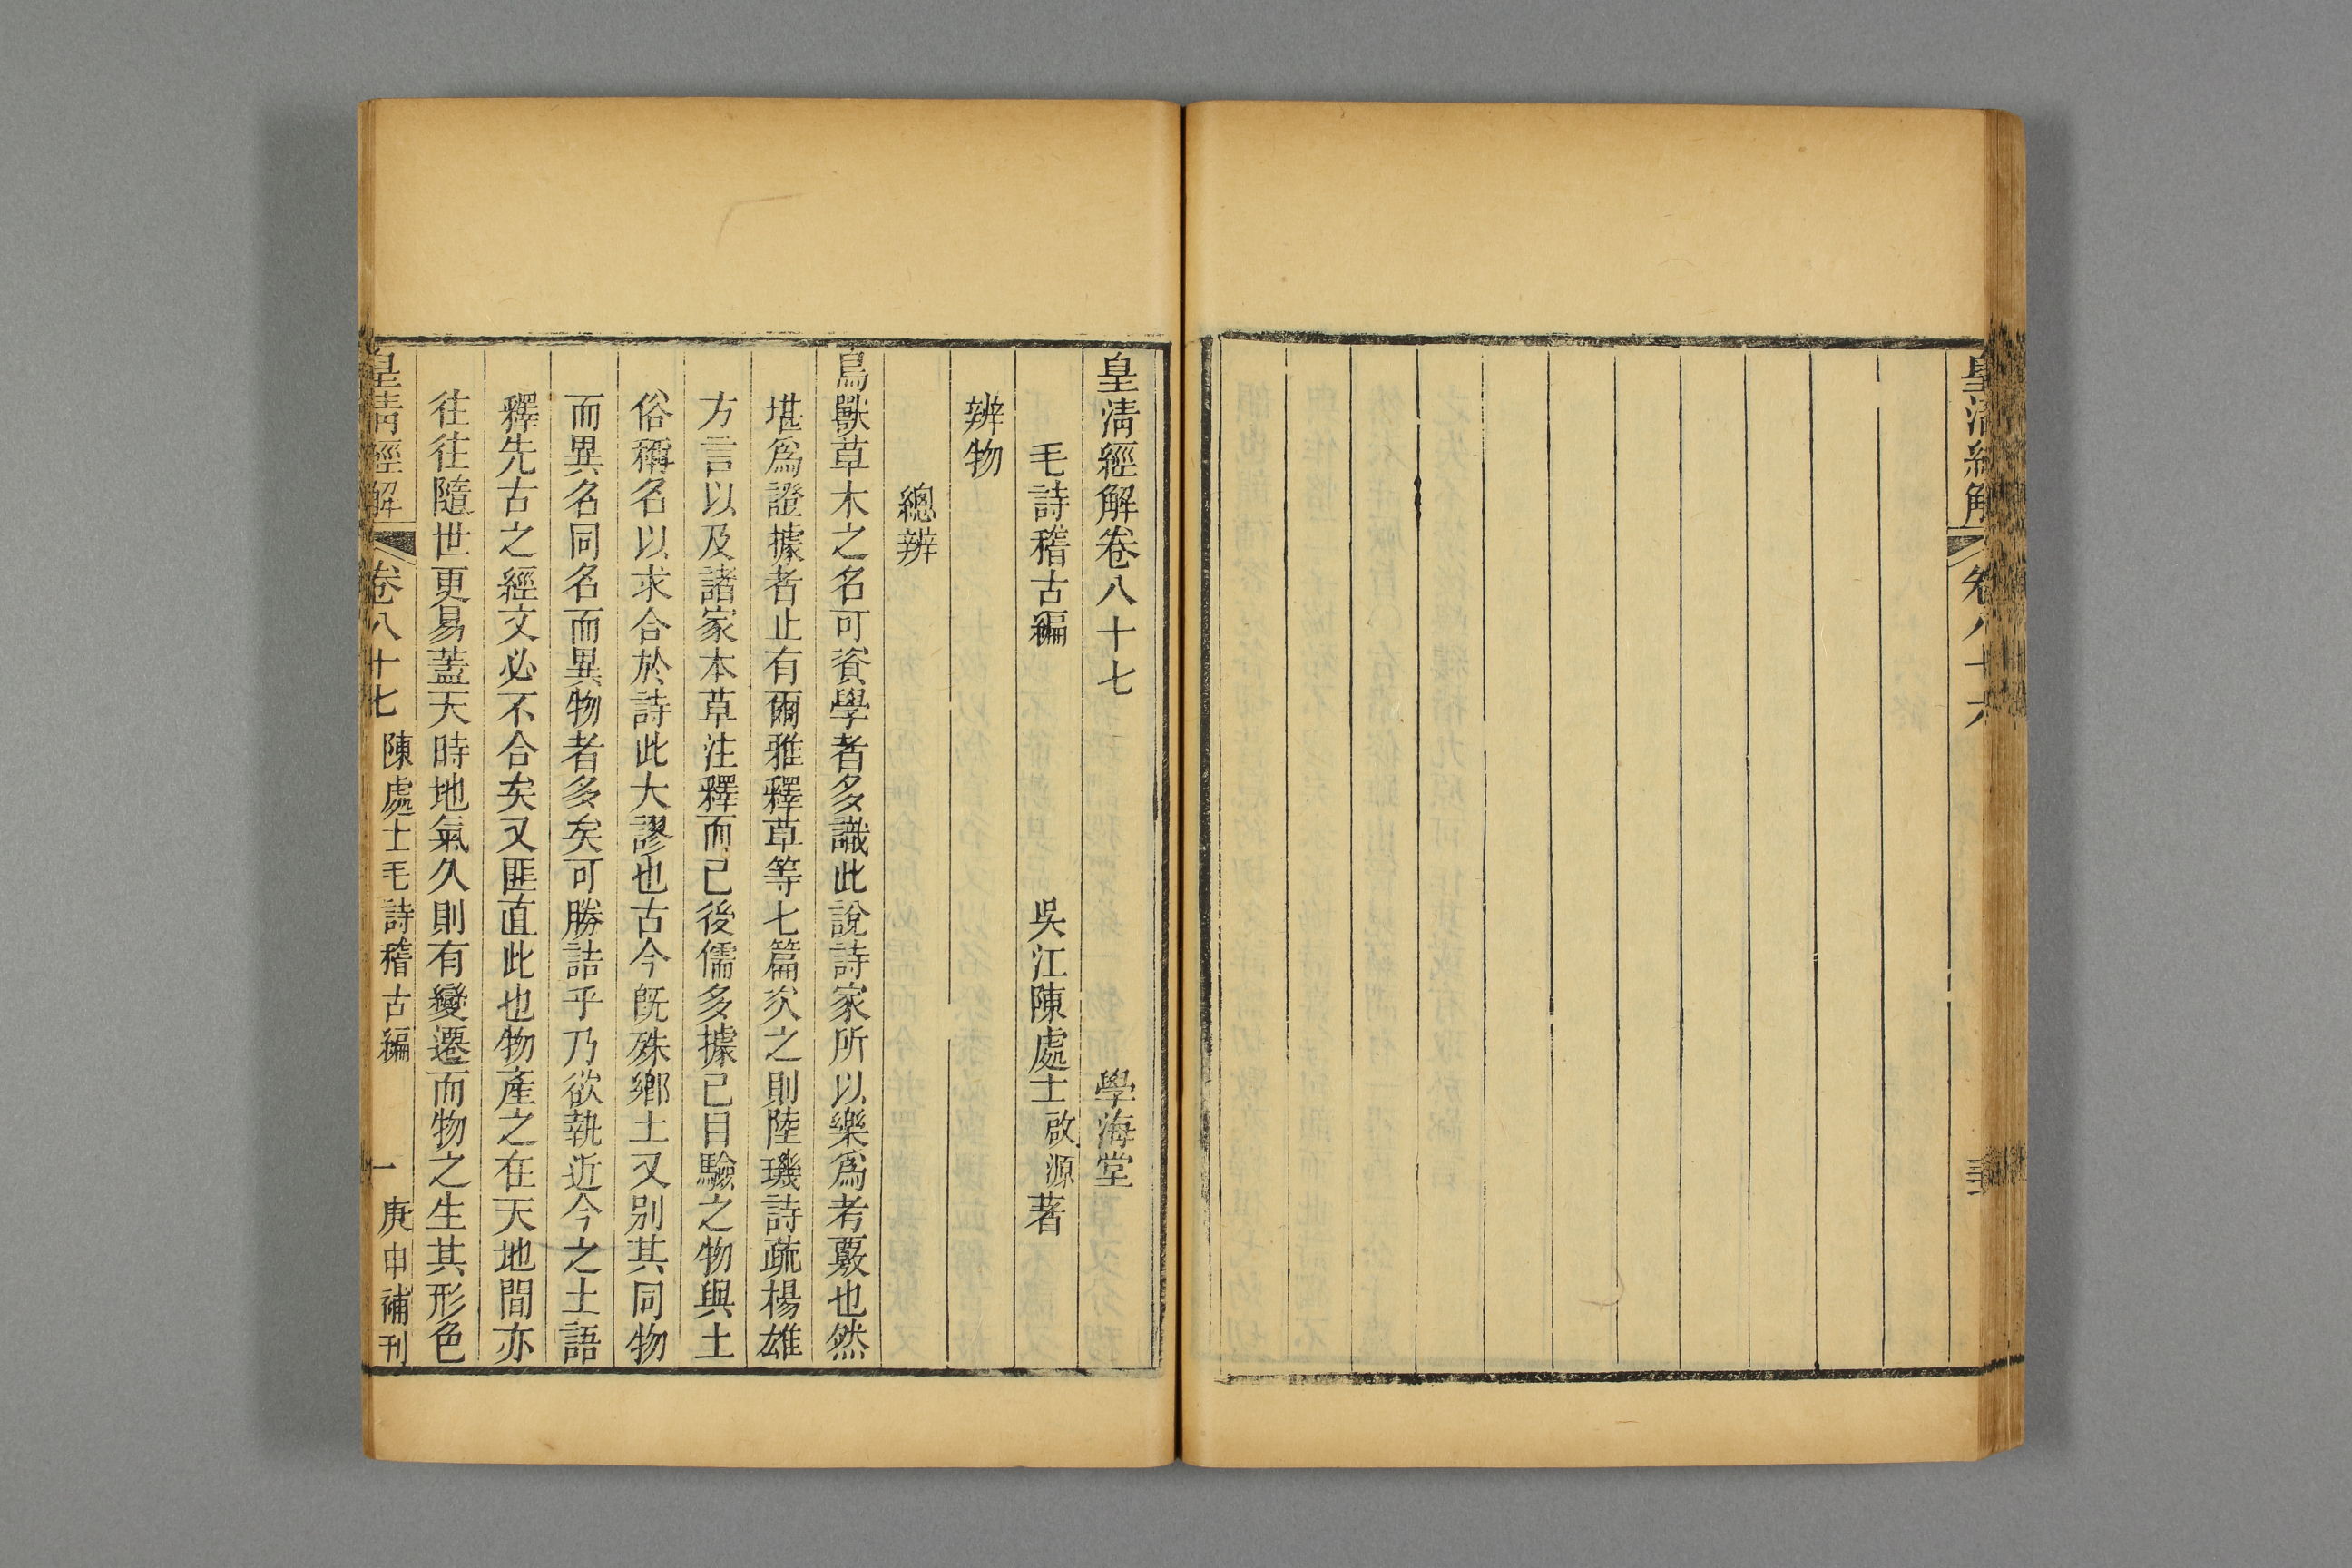 皇清經解
卷八十六
皇清經解卷八十七
學海堂
毛詩稽古編
吳江陳處士啟源著
辨物
總辨
鳥獸草木之名可資學者多識此說詩家所以樂爲考覈也然
堪爲證據者止有爾雅釋草等七篇次之則陸璣詩疏楊雄
方言以及諸家本草注釋而已後儒多據己目驗之物與土
俗稱名以求合於詩此大謬也古今旣殊鄉土又别其同物
而異名同名而異物者多矣可勝詰乎乃欲執近今之土語
釋先古之經文必不合矣又匪直此也物產之在天地間亦
往往隨世更易蓋天時地氣久則有變遷而物之生其形色
皇清經解
卷八十七
陳處士毛詩稽古編
一
庚申補刊